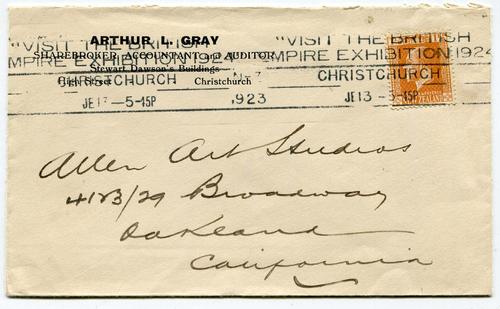 ARTHUR L. GRAY
SHAREBROKER, ACCOUNTANT and AUDITOR
Stewart Dawson's Buildings
Christchurch
"VISIT THE BRITISH
EMPIRE EXHIBITION 1924
CHRISTCHURCH
JE13 —5-15P
1923
"VISIT THE BRITISH
EMPIRE EXHIBITION 1924
CHRISTCHURCH
JE13 —5-15P
Allen Art Studios
Broadway
Oakland
California